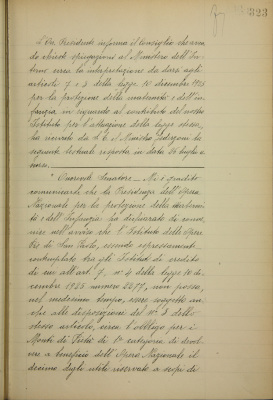 323
Il Presidente informa il Consiglio che aven-
do chiesto spiegazioni al Ministero dell'In-
terno circa la interpretazione da darsi agli
articoli 7 e 8 della legge 10 dicembre 1925
per la protezione della maternità e dell'in-
fanzia in riguardo al contributo del nostro
Istituto per l'attuazione della legge stessa,
ha ricevuto da S. E. il Ministro Federzoni la
seguente testuale risposta in data 26 luglio u
"Onorevole Senatore - Mi è gradito
comunicarle che la Presidenza dell'Opera
Nazionale per la protezione della maternità
e dell'Infanzia ha
nire nell'avviso che l'Istituto delle Opere
Pie di San Paolo, essendo espressamente
contemplato tra gli Istituti di credito
di cui all'art. 7, n° 4 della legge 10 di-
cembre 1925 numero 2277, non possa,
nel medesimo tempo, essere soggetto an-
che alle disposizioni del N° 3 dello
stesso articolo, circa l'obbligo per i
Monti di Pietà di 1ª categoria di devol-
vere a beneficio dell'Opera Nazionale il
decimo degli utili riservato a scopi di